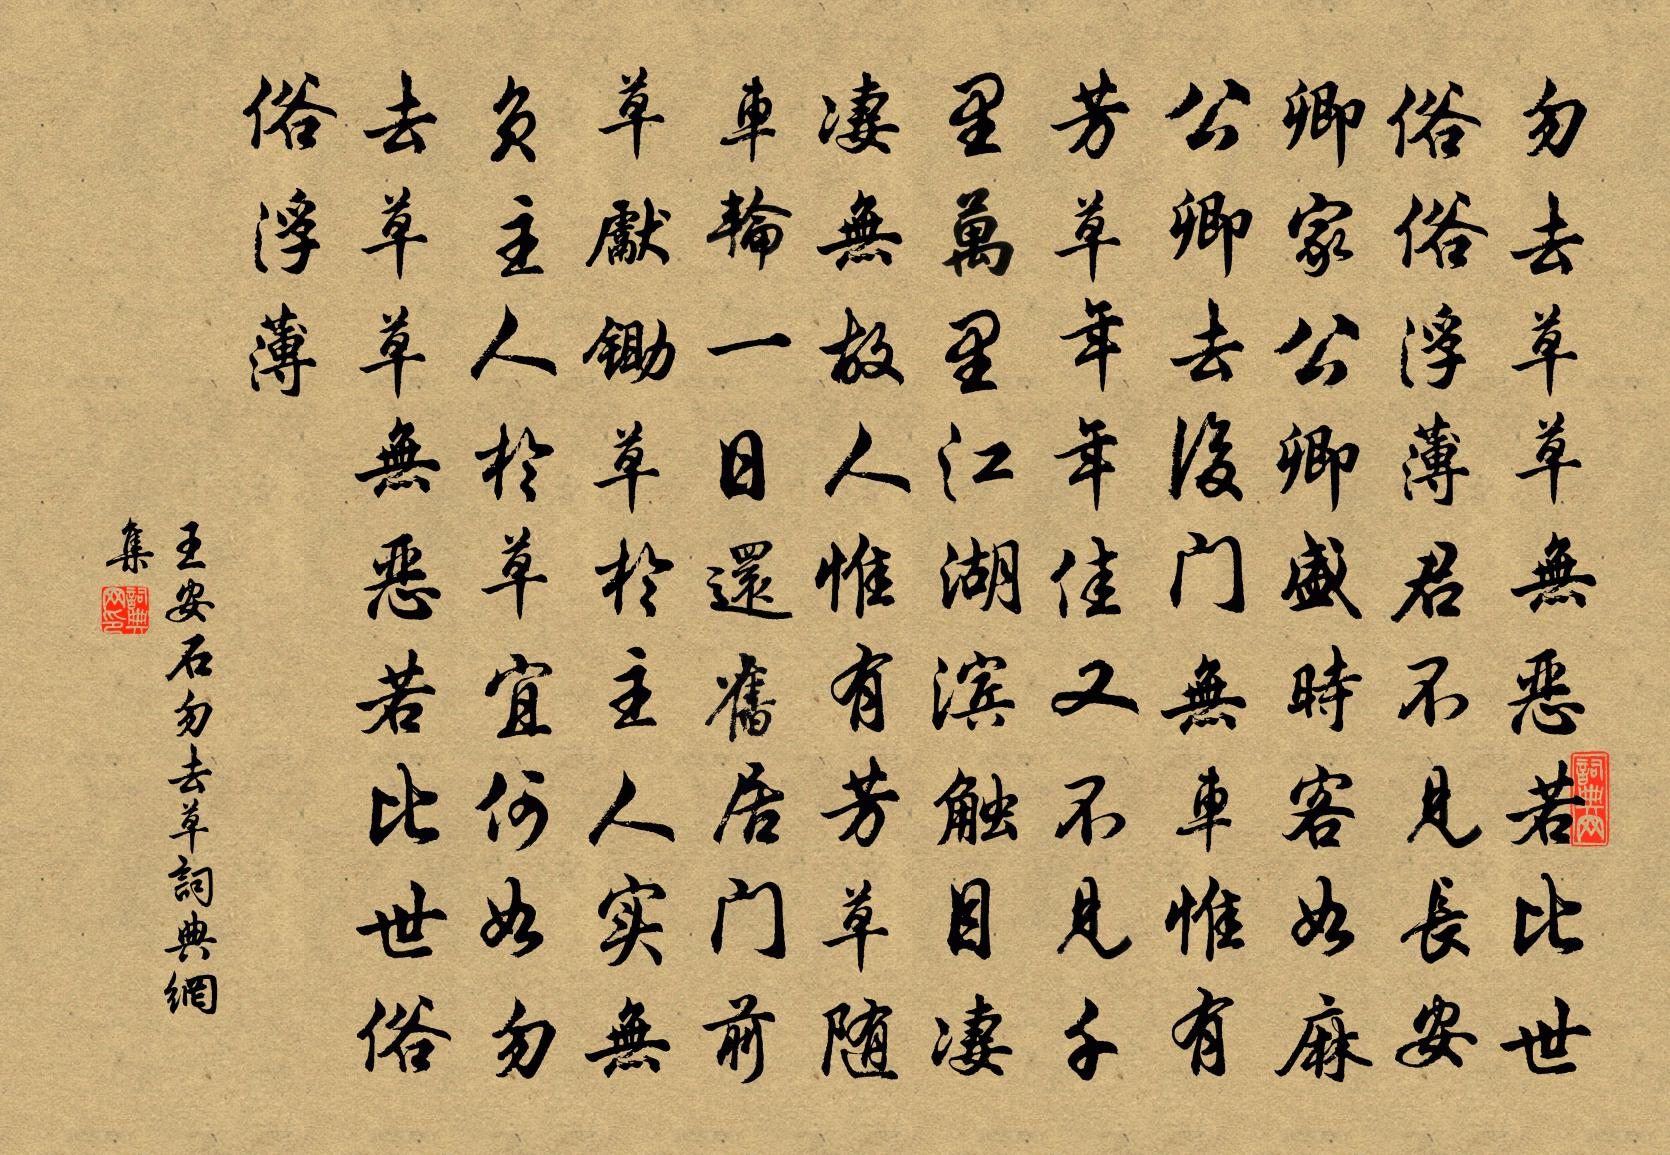 勿去草草無惡若比世
俗俗浮薄君不見長安
卿家公卿盛時客如麻
公卿去後门無車惟有
芳草年年佳又不見千
里萬里江湖滨触目凄
凄無故人惟有芳草随
車輪一日還舊居门前
草獻鋤草於主人实無
負主人於草宜何如勿
去草草無惡若比世俗
俗浮薄
王安石勿去草詞典網
集
詞典网
詞典网印